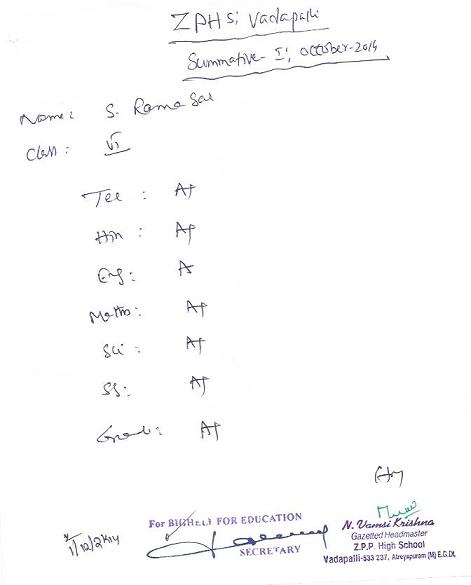 ZPHS; Vadapalli
Summative-I; October-2014
Name: S. Rama Sai
Class: VI
Tel: A+
Hin: A+
Eng: A
Maths: A+
Sci: A+
SS: A+
Grade: A+
For BIGHELP FOR EDUCATION
SECRETARY
N. Vamsi Krishna
Gazetted Headmaster
Z.P.P. High School
Vadapalli-533 237, Atreyapuram (M) E.G.Dt.